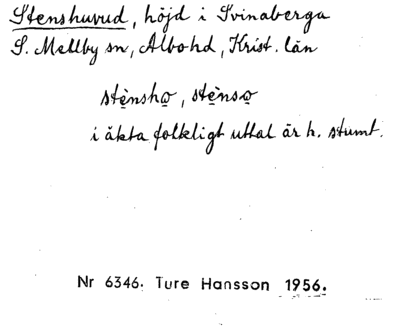 Stenshuvud, höjd i Svinaberga
S. Mellby sn, Albo hd, Krist. län
stènshọ, stènsọ
i äkta folkligt uttal är h. stumt.
Nr 6346. Ture Hansson 1956.